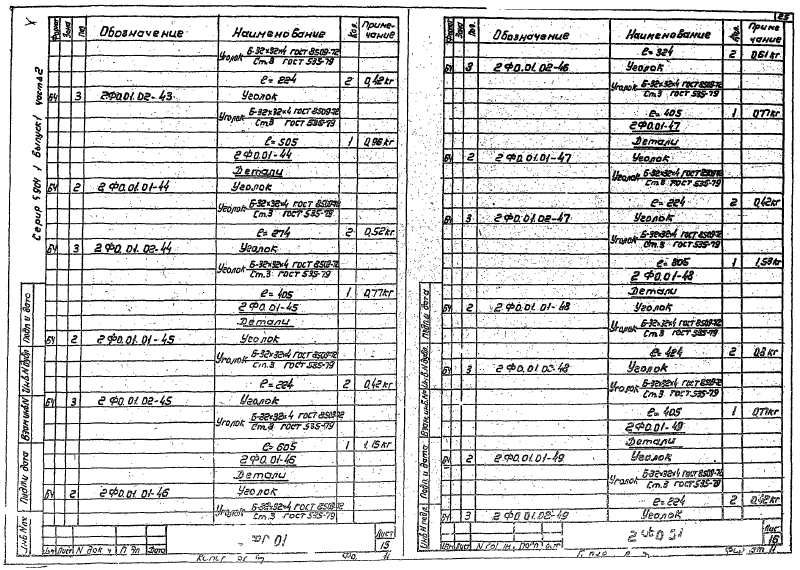 Формат Зона Поз. Обозначение Наименование Кол. Приме-чание
Уголок Б-32×32×4 ГОСТ 8509-72
Ст.3 ГОСТ 535-79
ℓ= 224 2 0,42кг
БЧ 3 2Ф0.01.02-43 Уголок
Уголок Б-32×32×4 ГОСТ 8509-72
Ст.3 ГОСТ 535-79
ℓ= 505 1 0,96кг
2Ф0.01-44
Детали
БЧ 2 2Ф0.01.01-44 Уголок
Уголок Б-32×32×4 ГОСТ 8509-72
Ст.3 ГОСТ 535-79
ℓ= 274 2 0,52кг
БЧ 3 2Ф0.01.02-44 Уголок
Уголок Б-32×32×4 ГОСТ 8509-72
Ст.3 ГОСТ 535-79
ℓ= 405 1 0,77кг
2Ф0.01-45
Детали
БЧ 2 2Ф0.01.01-45 Уголок
Уголок Б-32×32×4 ГОСТ 8509-72
Ст.3 ГОСТ 535-79
ℓ= 224 2 0,42кг
БЧ 3 2Ф0.01.02-45 Уголок
Уголок Б-32×32×4 ГОСТ 8509-72
Ст.3 ГОСТ 535-79
ℓ= 605 1 1,15кг
2Ф0.01-46
Детали
БЧ 2 2Ф0.01.01-46 Уголок
Уголок Б-32×32×4 ГОСТ 8509-72
Ст.3 ГОСТ 535-79
Лист
15
Лист Дата
Выпуск 1 часть 2
Подп. и дата
Инв.№ дубл.
Взам.инв.№
Подп. и дата
25
Формат Зона Поз. Обозначение Наименование Кол. Приме-чание
ℓ= 324 2 0,61кг
БЧ 3 2Ф0.01.02-46 Уголок
Уголок Б-32×32×4 ГОСТ 8509-72
Ст.3 ГОСТ 535-79
ℓ= 405 1 0,77кг
2Ф0.01-47
Детали
БЧ 2 2Ф0.01.01-47 Уголок
Уголок Б-32×32×4 ГОСТ 8509-72
Ст.3 ГОСТ 535-79
ℓ= 224 2 0,42кг
БЧ 3 2Ф0.01.02-47 Уголок
Уголок Б-32×32×4 ГОСТ 8509-72
Ст.3 ГОСТ 535-79
ℓ= 805 1 1,53кг
2Ф0.01-48
Детали
БЧ 2 2Ф0.01.01-48 Уголок
Уголок Б-32×32×4 ГОСТ 8509-72
Ст.3 ГОСТ 535-79
ℓ= 424 2 0,8кг
БЧ 3 2Ф0.01.02-48 Уголок
Уголок Б-32×32×4 ГОСТ 8509-72
Ст.3 ГОСТ 535-79
ℓ= 405 1 0,77кг
2Ф0.01-49
Детали
БЧ 2 2Ф0.01.01-49 Уголок
Уголок Б-32×32×4 ГОСТ 8509-72
Ст.3 ГОСТ 535-79
ℓ= 224 2 0,42кг
БЧ 3 2Ф0.01.02-49 Уголок
Лист
16
Подп. и дата
Инв.№ дубл.
Взам.инв.№
Подп. и дата